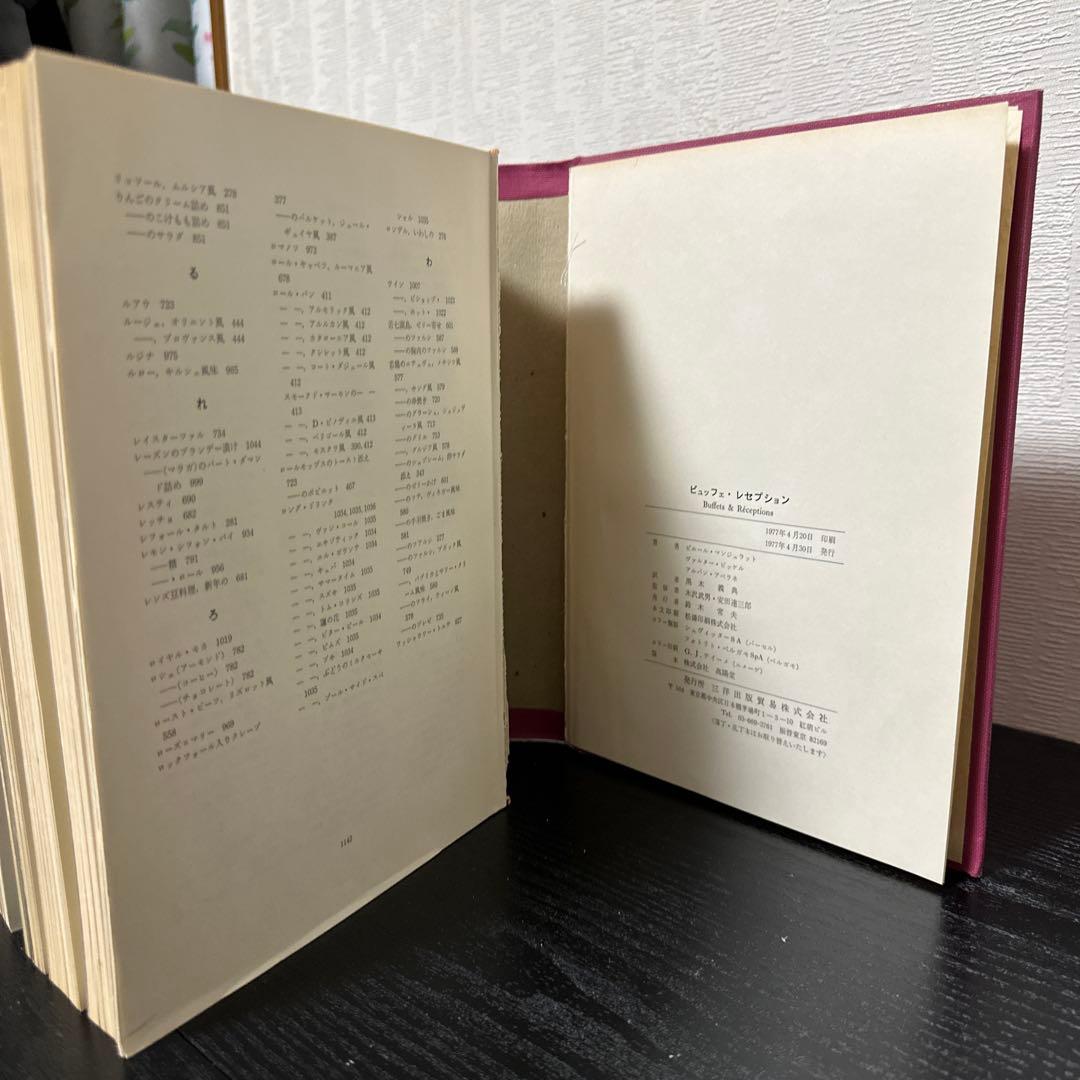 リョツール, ムルシア風 278
りんごのクリーム詰め 851
——のこけもも詰め 851
——のサラダ 851
る
ルアウ 723
ルージェ, オリエント風 444
——, プロヴァンス風 444
ルジナ 975
ルロー, キルシュ風味 965
れ
レイスターファル 734
レーズンのブランデー漬け 1044
——(マラガ)のパート・ダマン
ド詰め 999
レスティ 690
レッチョ 682
レフォール・タルト 281
レモン・シフォン・パイ 934
——糖 791
——・ロール 956
レンズ豆料理, 新年の 681
ろ
ロイヤル・モカ 1019
ロシェ(アーモンド) 782
——(コーヒー) 782
——(チョコレート) 782
ロースト・ビーフ, リズロット風
558
ローズ=マリー 969
ロックフォール入りクレープ
377
——のパルケット, ジュール・
ヴェイヤ風 387
ロマノフ 973
ロール・キャベツ, ルーマニア風
678
ロール・パン 411
— —, アルモリック風 412
— —, アルルカン風 412
— —, カタローニア風 412
— —, クレレット風 412
— —, コート・ダジュール風
412
スモークド・サーモンの— —
413
— —, D・ピノディエ風 413
— —, ペリゴール風 412
— —, モスクワ風 390,412
ロールモップスのトースト添え
723
——のポピエット 467
ロング・ドリンク
1034, 1035, 1036
— —, ヴァン・コール 1035
— —, エキゾティック 1034
— —, エル・ガランテ 1034
— —, キュバ 1034
— —, サマータイム 1035
— —, スズキ 1035
— —, トム・コリンズ 1035
— —, 蓮の花 1035
— —, ビター・ピール 1034
— —, ピムズ 1035
— —, プキ 1034
— —, ぶどうのミルクセーキ
1035
— —, プール・サイド・スペ
シャル 1035
ロンデル, いわしの 276
わ
ワイン 1007
——, ビショップ・ 1021
——, ホット・ 1022
若七面鳥, ゼリー寄せ 601
——のファルシ 587
——の胸肉のファルシ 588
577
——, キング風 579
——の串焼き 720
——のグリエ 753
——, ダルジア風 578
添え 343
——のゼリーかけ 601
580
——の手羽焼き, ごま風味
581
——のファルシ 577
749
ーム風味 580
——のフライ, ウィーン風
578
——のブレゼ 725
ワッシェラリー・トルテ 927
1142
ビュッフェ・レセプション
Buffets & Réceptions
1977年4月20日 印刷
1977年4月30日 発行
著 者 ピエール・マンジュラット
ヴァルター・ビッケル
アルバン・アベラネ
訳 者 黒木 義典
監修者 木沢武男・安田達三郎
発行者 鈴木 常夫
本文印刷 松濤印刷株式会社
カラー製版 シュヴィッターSA (バーゼル)
フォトリト・ベルガモSpA (ベルガモ)
カラー印刷 G. J. ティーメ (ニメーゲ)
製 本 株式会社 高陽堂
発行所 三洋出版貿易株式会社
〒103 東京都中央区日本橋茅場町1−3−10 紅萌ビル
Tel. 03-669-3761 振替東京 82169
(落丁・乱丁本はお取り替えいたします)